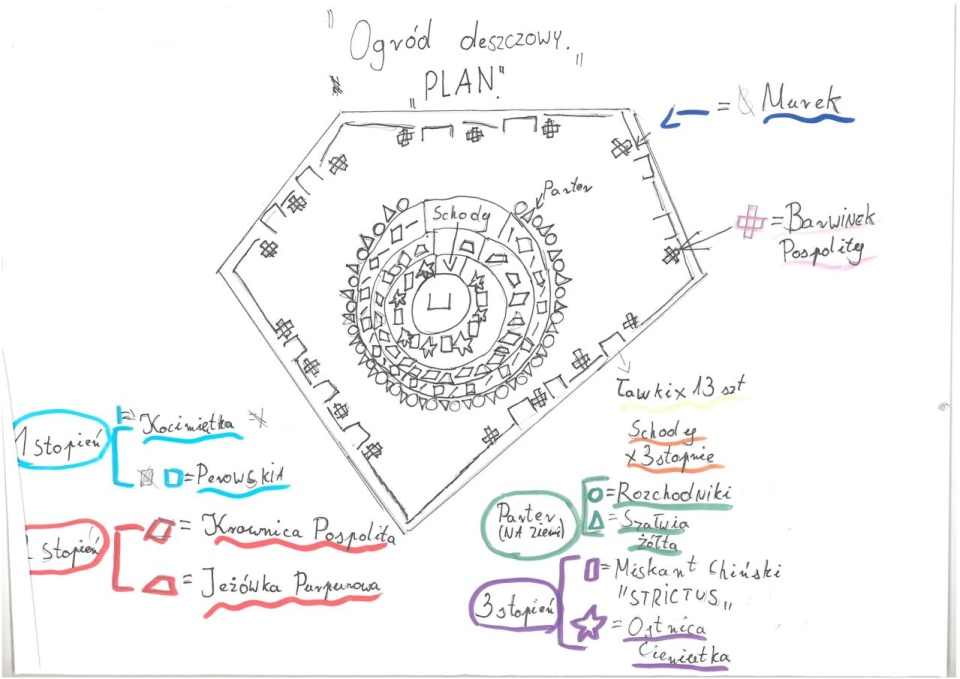 "Ogród deszczowy."
"PLAN."
= Murek
Parter
Schody
= Barwinek
Pospolity
Ławki x 13 szt
Schody
x 3 stopnie
1 stopień
= Kocimiętka
= Perowskia
stopień
= Krawnica Pospolita
= Jeżówka Purpurowa
Parter
(NA ziemi)
= Rozchodniki
= Szałwia
żółta
3 stopień
= Miskant Chiński
"STRICTUS"
= Ostnica
Cieniutka